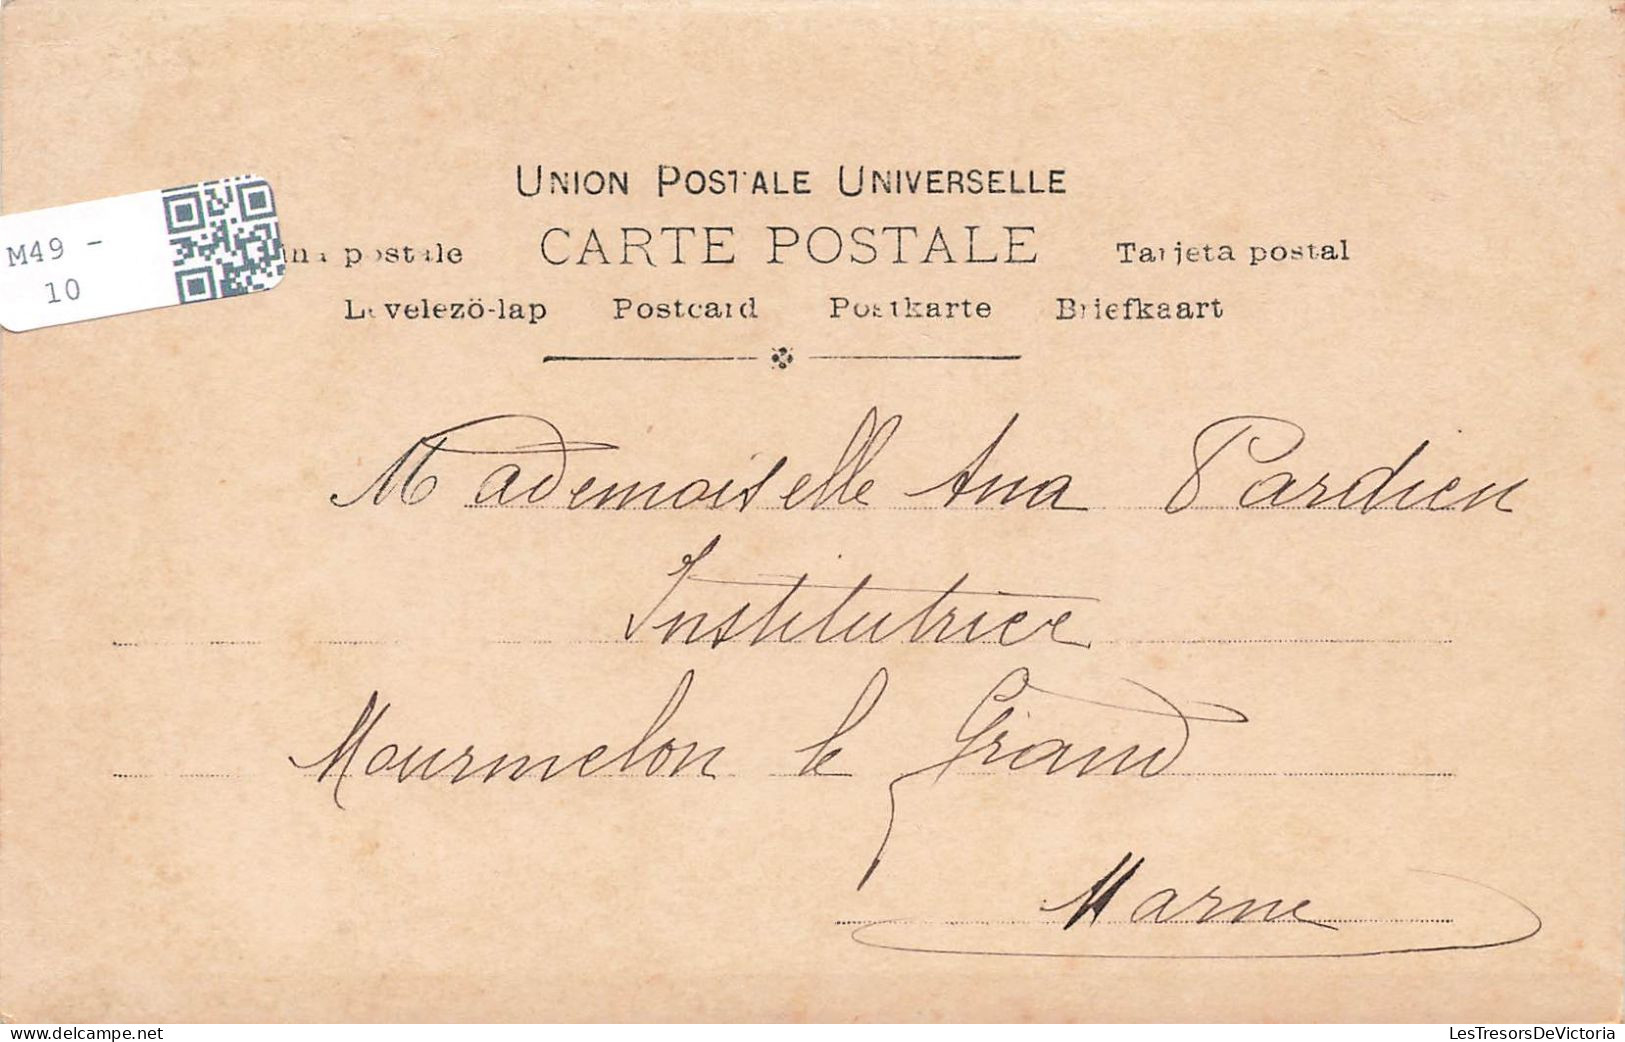 UNION POSTALE UNIVERSELLE
M49 - postale CARTE POSTALE Tarjeta postal
10 Levelezö-lap Postcard Postkarte Briefkaart
Mademoiselle Ana Pardieu
Institutrice
Mourmelon le Grand
Marne
delcampe.net LesTresorsDeVictoria